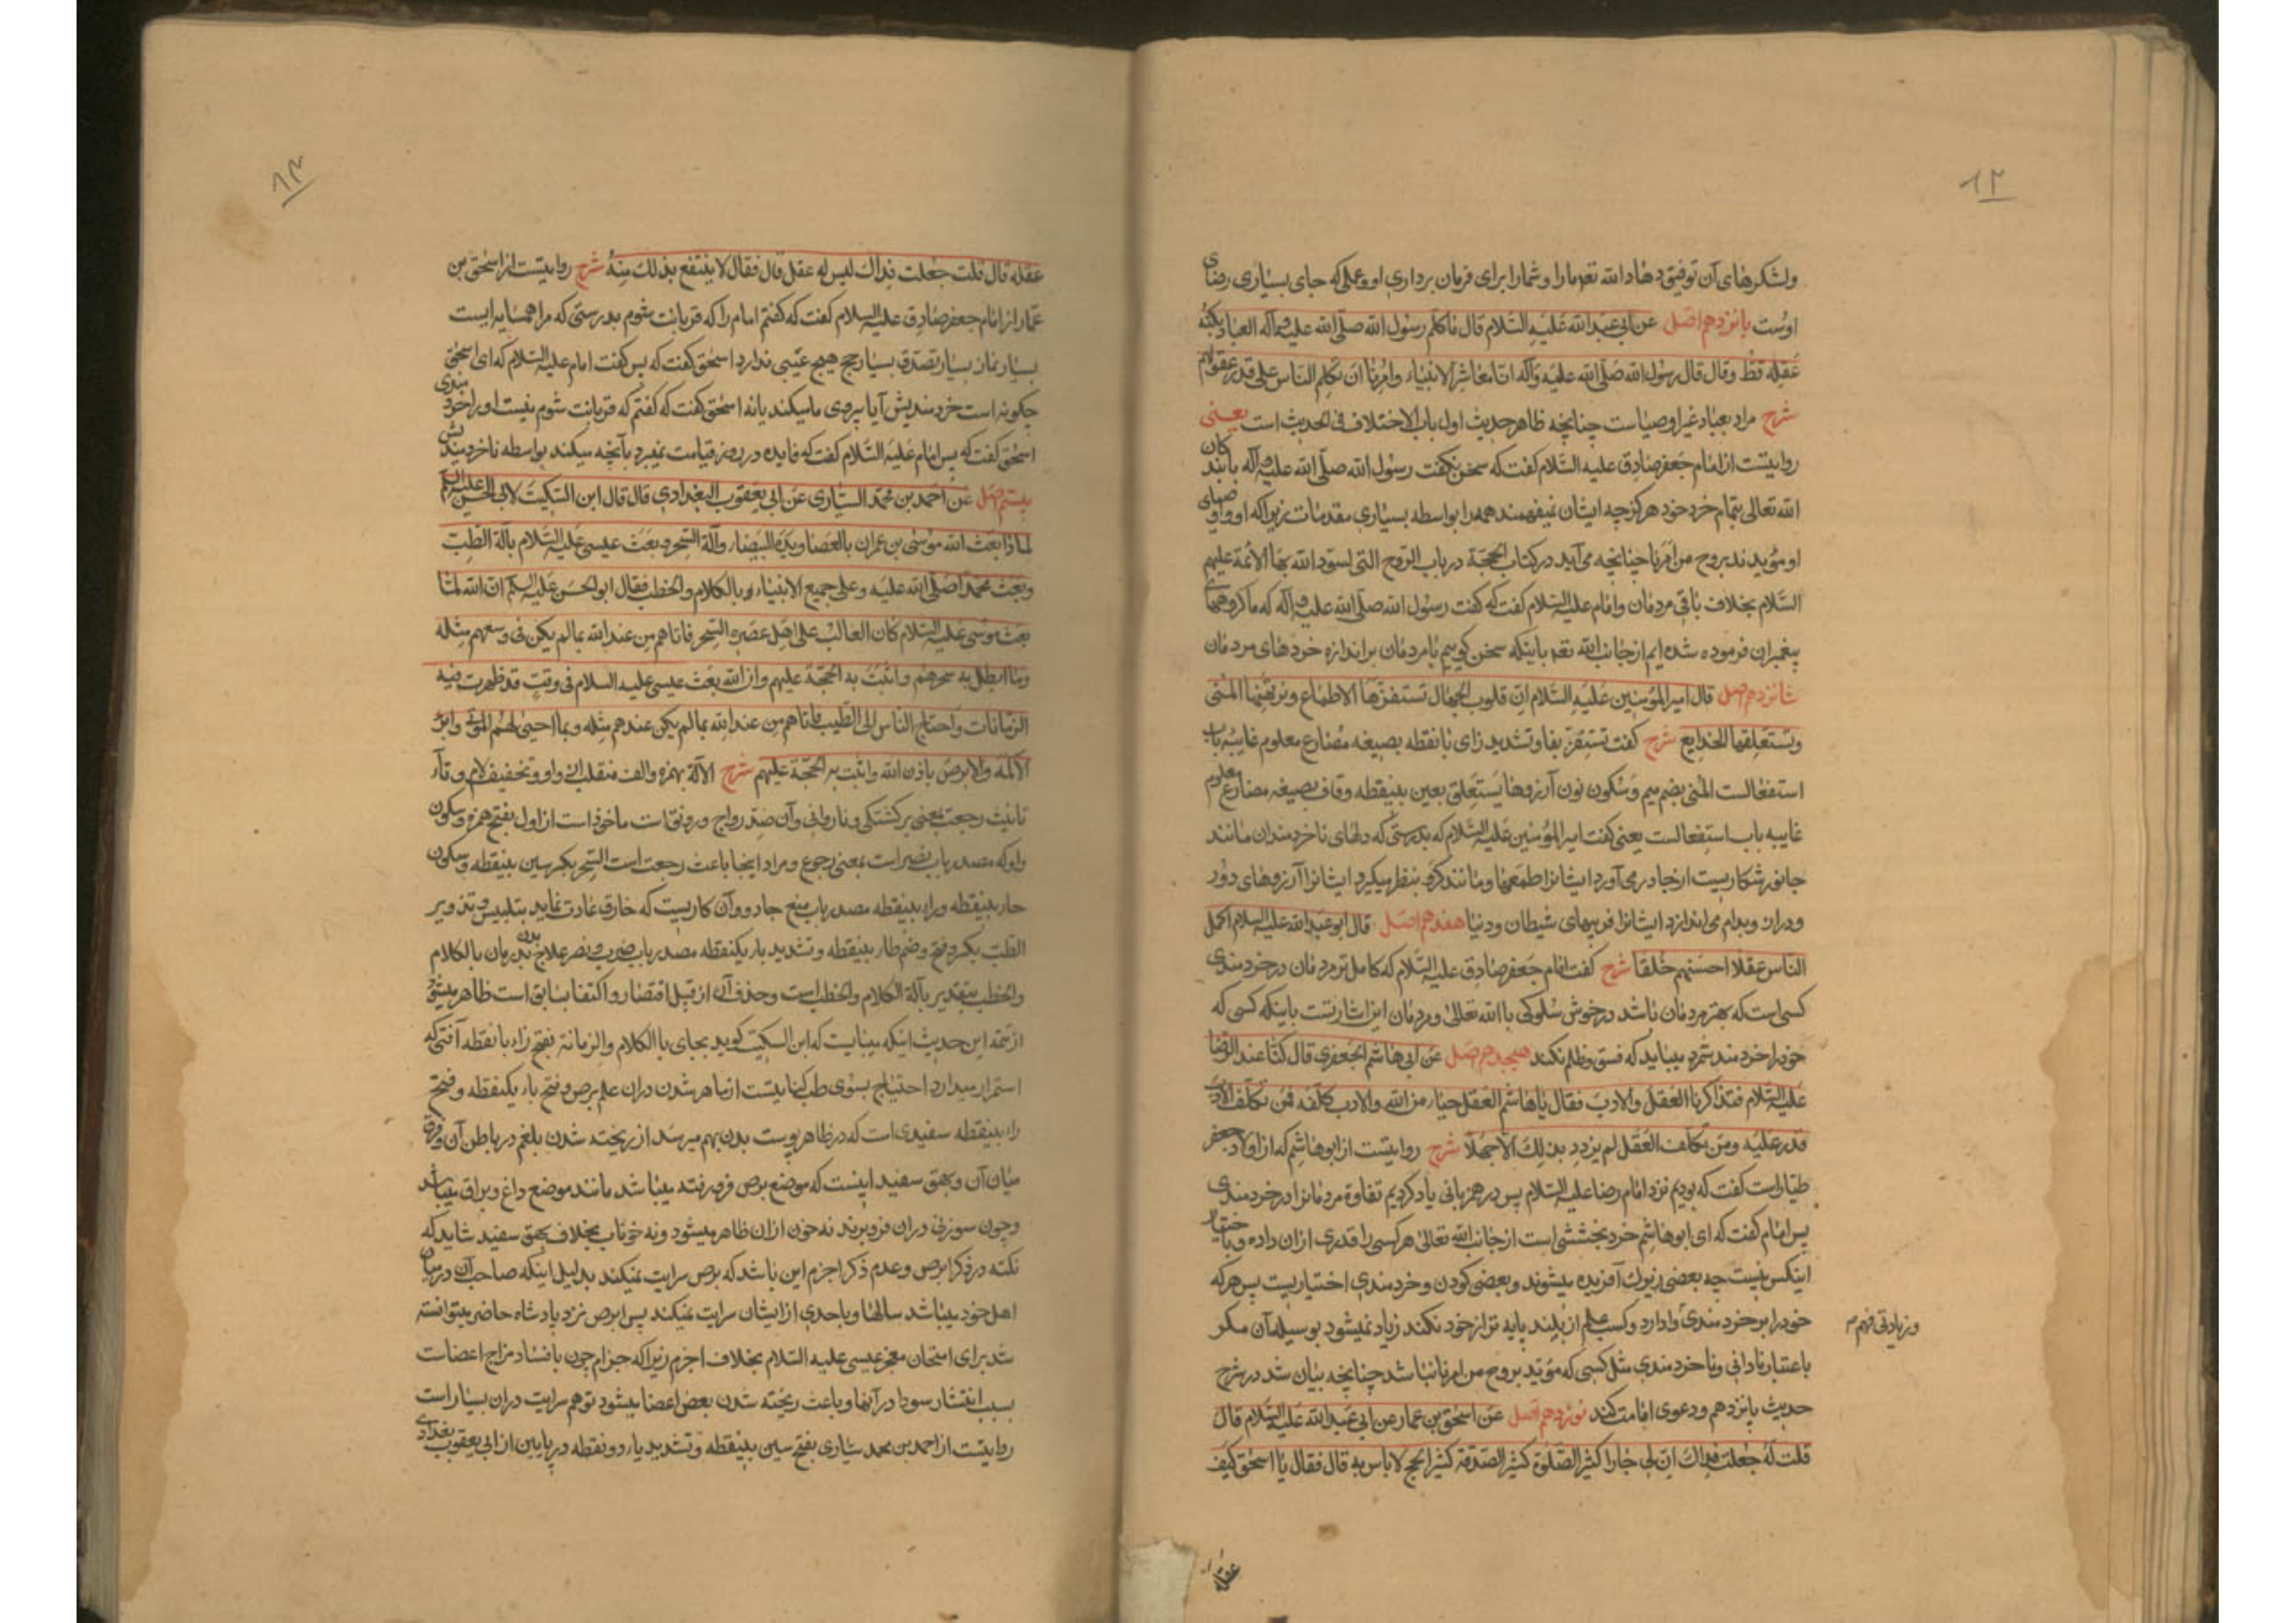 ۱۲
ولشکرهای آن توفیق دهاد الله تعه ما را و شما را برای فرمان برداری او و عملی که جای بسیاری رضای
اوست پانزدهم اصل عن ابی عبد الله علیه السّلام قال ما کلّم رسول الله صلّی الله علیه و آله العباد بکنه
عقله قطّ وقال قال رسول الله صلّی الله علیه وآله انّا معاشر الانبیاء وامرنا ان نکلّم النّاس علی قدر عقولهم
شرح مراد بعباد غیر اوصیاست چنانچه ظاهر حدیث اول باب الاختلاف فی الحدیث است یعنی
روایتست از امام جعفر صادق علیه السّلام گفت که سخن نگفت رسول الله صلّی الله علیه و آله با بندکان
الله تعالی بتمام خرد خود هرگز چه ایشان نمیفهمند همه را بواسطه بسیاری مقدمات زیرا که او و اوصیای
او مؤیدند بروح من امرنا چنانچه می آید در کتاب الحجّة در باب الرّوح التی یسدد الله بها الائمّة علیهم
السّلام بخلاف باقی مردمان وامام علیه السّلام گفت که گفت رسول الله صلّی الله علیه و آله که ما گروهای
پیغمبران فرموده شده ایم از جانب الله تعه باینکه سخن گوییم با مردمان بر اندازه خردهای مردمان
شانزدهم اصل قال امیر المؤمنین علیه السّلام انّ قلوب الجهّال تستفزّها الاطماع وترتهنها المنی
وتستعلقها الخدایع شرح گفت تستفزّ بفا وتشدید زای با نقطه بصیغه مضارع معلوم غایبه باب
استفعالست المنی بضم میم وسکون نون آرزوها یستعلق بعین بینقطه وقاف بصیغه مضارع معلوم
غایبه باب استفعالست یعنی گفت امیر المؤمنین علیه السّلام که بدرستی که دلهای ناخردمندان مانند
جانور شکاریست از جا در می آورد ایشانرا طمعها ومانند گرو بنظر میگیرد ایشانرا آرزوهای دور
ودراز وبدام می اندازد ایشانرا فریبهای شیطان ودنیا هفدهم اصل قال ابو عبد الله علیه السلام اکمل
النّاس عقلا احسنهم خلقا شرح گفت امام جعفر صادق علیه السّلام که کامل تر مردمان در خردمندی
کسی است که بهتر مردمان باشد در خوش سلوکی با الله تعالی ومردمان این اشارتست باینکه کسی که
خود را خردمند شمرد میباید که فسق وظلم نکند هیجدهم اصل عن ابی هاشم الجعفری قال کنّا عند الرّضا
علیه السّلام فتذاکرنا العقل والادب فقال یا با هاشم العقل حباء من الله والادب کلفه فمن تکلّف الادب
قدر علیه ومن تکلّف العقل لم یزدد بذلک الّا جهلا شرح روایتست از ابو هاشم که از اولاد جعفر
طیّار است گفت که بودیم نزد امام رضا علیه السلام پس در هم زبانی یاد کردیم تفاوة مردمانرا در خردمندی
پس امام گفت که ای ابو هاشم خرد بخششی است از جانب الله تعالی هر کسی را قدری از آن داده وباختیار
اینکس نیست چه بعضی زیرک آفریده میشوند وبعضی کودن وخردمندی اختیاریست پس هر که
خود را بر خردمندی وادارد وکسب علم از بلند پایه تر از خود نکند زیاد نمیشود بوسیله آن مگر
وزیادتی فهم م
باعتبار نادانی وناخردمندی مثل کسی که مؤید بروح من امرنا نباشد چنانچه بیان شد در شرح
حدیث پانزدهم ودعوی امامت کند نوزدهم اصل عن اسحق بن عمار عن ابی عبد الله علیه السّلام قال
قلت له جعلت فداک انّ لی جارا کثیر الصّلوة کثیر الصّدقة کثیر الحج لا باس به قال فقال یا اسحق کیف
عقله
۱۳
عقله قال قلت جعلت فداک لیس له عقل قال فقال لا ینتفع بذلک منه شرح روایتست از اسحق بن
عمّار از امام جعفر صادق علیه السلام گفت که گفتم امام را که قربانت شوم بدرستی که مرا همسایه ایست
بسیار نماز بسیار تصدق بسیار حج هیچ عیبی ندارد اسحق گفت که پس گفت امام علیه السّلام که ای اسحق
چگونه است خردمندیش آیا پیروی ما میکند یا نه اسحق گفت که گفتم که قربانت شوم نیست او را خردمندی
اسحق گفت که پس امام علیه السّلام گفت که فایده در روز قیامت نمیبرد بآنچه میکند بواسطه ناخردمندیش
بیستم اصل عن احمد بن محمّد السیّاری عن ابی یعقوب البغدادی قال قال ابن السکّیت لابی الحسن علیه السلام
لما ذا بعث الله موسی بن عمران بالعصا ویده البیضاء وآلة السّحر وبعث عیسی علیه السّلام بآلة الطّب
وبعث محمّدا صلّی الله علیه وعلی جمیع الانبیاء بالکلام والخطب فقال ابو الحسن علیه السلم انّ الله لمّا
بعث موسی علیه السّلام کان الغالب علی اهل عصره السّحر فاتاهم من عند الله بما لم یکن فی وسعهم مثله
وما ابطل به سحرهم واثبت به الحجّة علیهم وان الله بعث عیسی علیه السلام فی وقت قد ظهرت فیه
الزّمانات واحتاج النّاس الی الطّب فاتاهم من عند الله بما لم یکن عندهم مثله وبما احیی لهم الموتی وابرء
الاکمه والابرص باذن الله واثبت به الحجّة علیهم شرح الآلة بهمزه والف منقلب از واو وتخفیف لام وتاء
تانیث رجعت یعنی برگشتگی وناروانی وآن ضدّ رواج ورونق است ماخوذ است از اول بفتح همزه وسکون
واو که مصدر باب نصر است بمعنی رجوع ومراد اینجا باعث رجعت است السّحر بکسر سین بینقطه وسکون
حاء بینقطه وراء بینقطه مصدر باب منع جادو وآن کاریست که خارق عادت نماید بتلبیس وتذویر
الطّب بکسر وفتح وضم طاء بینقطه وتشدید باء یکنقطه مصدر باب ضرب ونصر علاج بدن درمان بالکلام
والخطب بتقدیر بآلة الکلام والخطب است وحذف آن از قبیل اقتصار واکتفا بسابق است ظاهر میشود
از تتمه این حدیث اینکه میبایست که ابن السکّیت گوید بجای با الکلام والزمانة بفتح زاء با نقطه آفتی که
استمرار میدارد احتیاج بسوی طب کنایتست از ماهر شدن دران علم برص بفتح باء یکنقطه وفتح
راء بینقطه سفیدی است که در ظاهر پوست بدن بهم میرسد از ریخته شدن بلغم در باطن آن وفرق
میان آن وبهق سفید اینست که موضع برص فرو رفته میباشد مانند موضع داغ وبراق میباشد
وچون سوزنی دران فرو برند نه خون ازان ظاهر میشود ونه خوناب بخلاف بهق سفید شاید که
نکته در ذکر ابرص وعدم ذکر اجزم این باشد که برص سرایت نمیکند بدلیل اینکه صاحب آن در میان
اهل خود میباشد سالها وباحدی از ایشان سرایت نمیکند پس ابرص نزد پادشاه حاضر میتوانسته
شد برای امتحان معجز عیسی علیه السّلام بخلاف اجزم زیرا که جزام چون با فساد مزاج اعضاست
بسبب انتشار سودا در آنها وباعث ریخته شدن بعض اعضا میشود توهم سرایت دران بسیار است
روایتست از احمد بن محمد سیّاری بفتح سین بینقطه وتشدید یاء دو نقطه در پایین از ابی یعقوب بغدادی